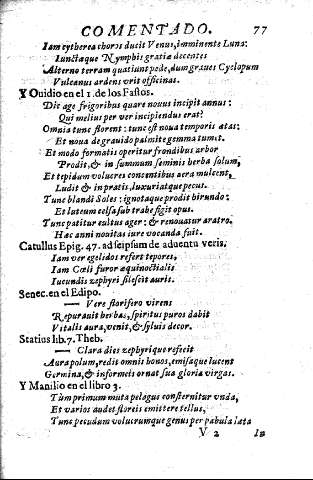 COMENTADO. 77
Iam cytherea choros ducit Venus, imminente Luna:
Iunctiaque Nymphis gratiæ decentes
Alterno terram quatiunt pede, dum graues Cyclopum
Vulcanus ardens vrit officinas.
Y Ouidio en el 1. de los Fastos.
Dic age frigoribus quare nouus incipit annus:
Qui melius per ver incipiendus erat?
Omnia tunc florent: tunc est noua temporis ætas:
Et noua de grauido palmite gemma tumet.
Et modo formatis operitur frondibus arbor
Prodit, & in summum seminis herba solum,
Et tepidum volucres concentibus aera mulcent,
Ludit & in pratis, luxuriatque pecus.
Tunc blandi Soles: ignotaque prodit hirundo:
Et luteum celsa sub trabe figit opus.
Tunc patitur cultus ager: & renouatur aratro.
Hæc anni nouitas iure vocanda fuit.
Catullus Epig. 47. ad seipsum de aduentu veris.
Iam ver egelidos refert tepores,
Iam Cœli furor æquinoctialis
Iucundis zephyri silescit auris.
Senec. en el Edipo.
— Vere florifero virens
Reparauit herbas, spiritus puros dabit
Vitalis aura, venit, & syluis decor.
Statius lib. 7. Theb.
— Clara dies zephyrique refecit
Aura polum, redit omnis honos, emissaque lucent
Germina, & informeis ornat sua gloria virgas.
Y Manilio en el libro 3.
Tùm primum muta pelagus consternitur vnda,
Et varios audet floreis emittere tellus,
Tunc pecudum volucrumque genus per pabula læta
V 2 In